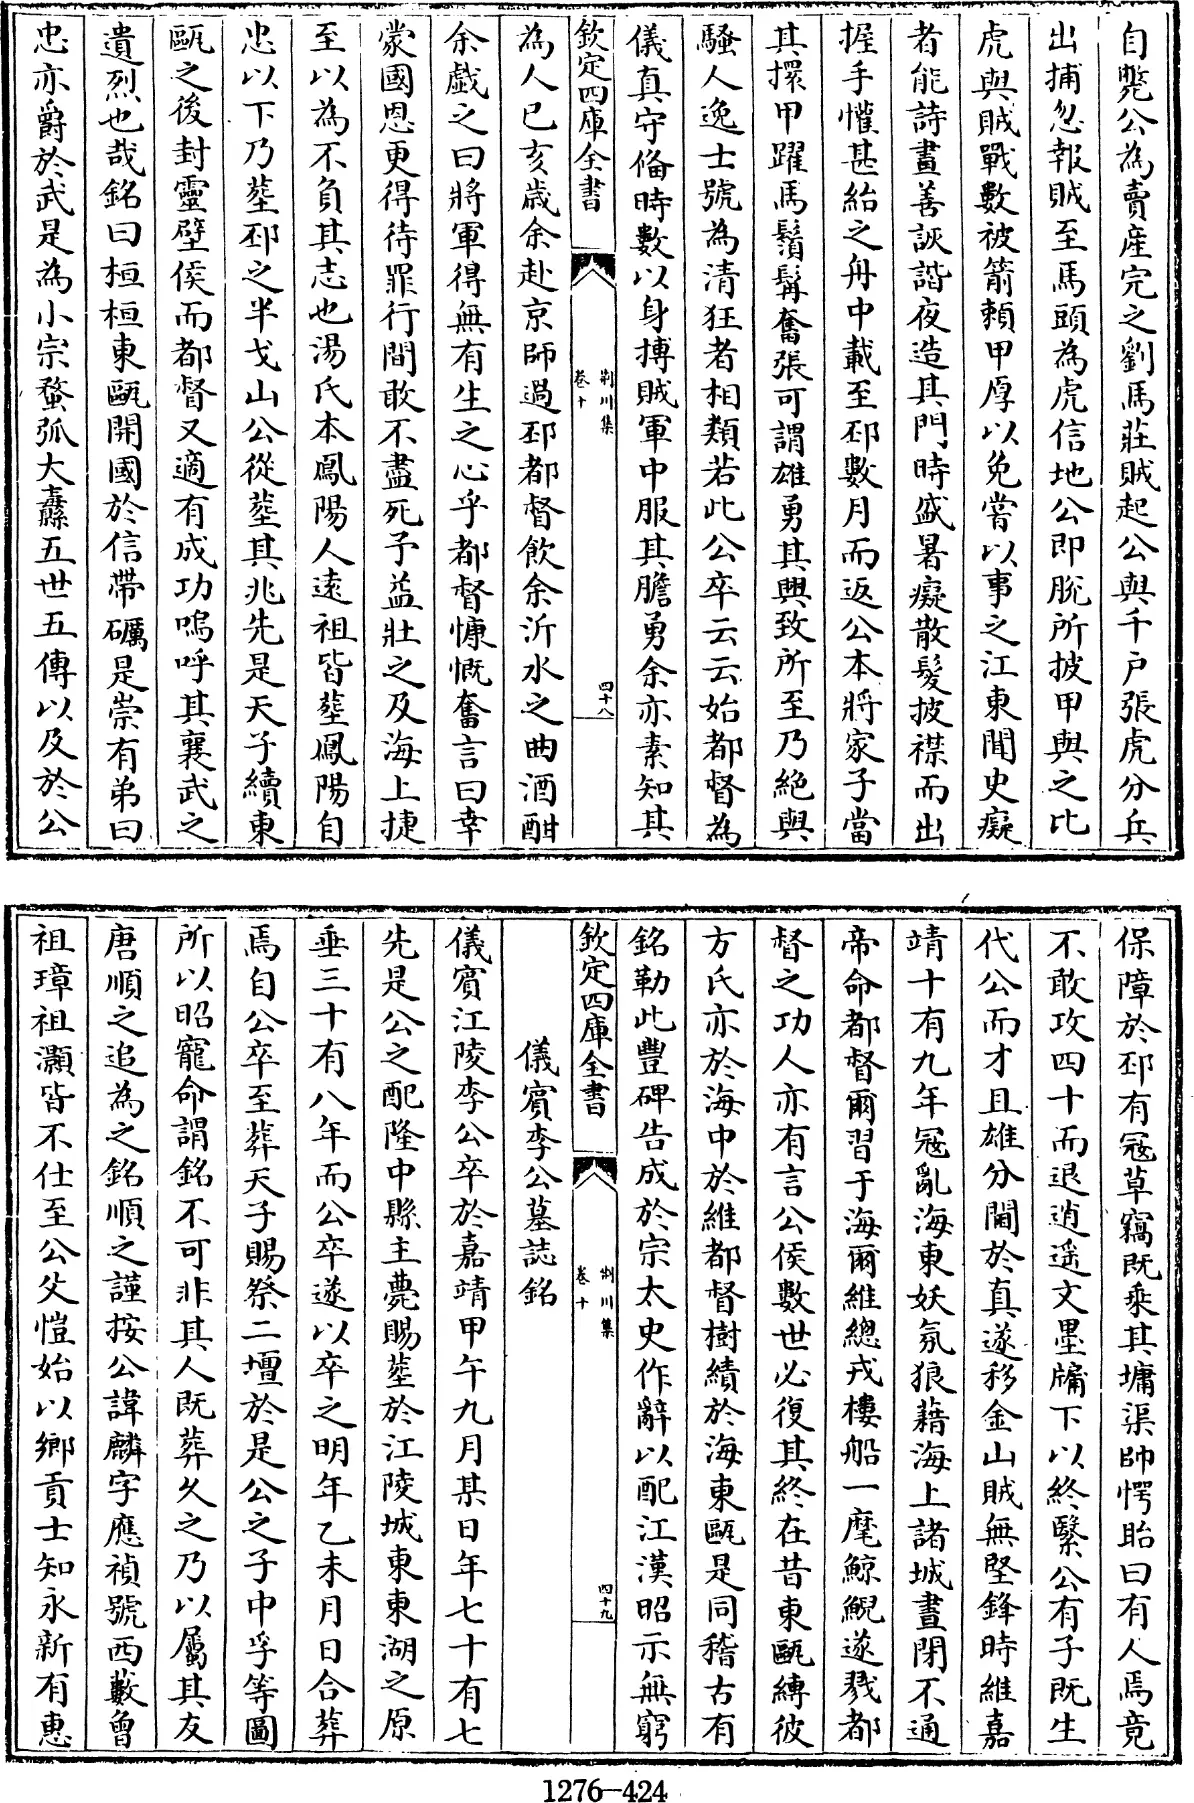 自斃公為賣産完之劉馬莊賊起公與千户張虎分兵
出捕忽報賊至馬頭為虎信地公即脫所披甲與之比
虎與賊戰數被箭頼甲厚以免嘗以事之江東聞史癡
者能詩畫善詼諧夜造其門時盛暑癡散髮披襟而出
握手懽甚紿之舟中載至邳數月而返公本將家子當
其擐甲躍馬鬚髯奮張可謂雄勇其興致所至乃絶與
騷人逸士號為清狂者相類若此公卒云云始都督為
儀真守俻時數以身摶賊軍中服其膽勇余亦素知其
欽定四庫全書
荆川集
卷十
四十八
為人已亥歲余赴京師過邳都督飲余沂水之曲酒酣
余戲之曰將軍得無有生之心乎都督慷慨奮言曰幸
蒙國恩更得待罪行間敢不盡死予益壯之及海上捷
至以為不負其志也湯氏本鳳陽人遠祖皆塟鳳陽自
忠以下乃塟邳之半戈山公從塟其兆先是天子續東
甌之後封靈壁侯而都督又適有成功嗚呼其襄武之
遺烈也哉銘曰桓桓東甌開國於信帶礪是崇有弟曰
忠亦爵於武是為小宗蝥弧大纛五世五傳以及於公
保障於邳有冦草竊既乘其墉渠帥愕眙曰有人焉竟
不敢攻四十而退逍遥文墨牖下以終繄公有子既生
代公而才且雄分閫於真遂移金山賊無堅鋒時維嘉
靖十有九年冦亂海東妖氛狼藉海上諸城晝閉不通
帝命都督爾習于海爾維總戎樓船一麾鯨鯢遂戮都
督之功人亦有言公侯數世必復其終在昔東甌縛彼
方氏亦於海中於維都督樹績於海東甌是同稽古有
銘勒此豐碑告成於宗太史作辭以配江漢昭示無窮
欽定四庫全書
荆川集
卷十
四十九
儀賓李公墓誌銘
儀賓江陵李公卒於嘉靖甲午九月某日年七十有七
先是公之配隆中縣主薨賜塟於江陵城東東湖之原
垂三十有八年而公卒遂以卒之明年乙未月日合葬
焉自公卒至葬天子賜祭二壇於是公之子中孚等圖
所以昭寵命謂銘不可非其人既葬久之乃以屬其友
唐順之追為之銘順之謹按公諱麟字應禎號西藪曾
祖璋祖灝皆不仕至公父愷始以鄉貢士知永新有惠
1276-424